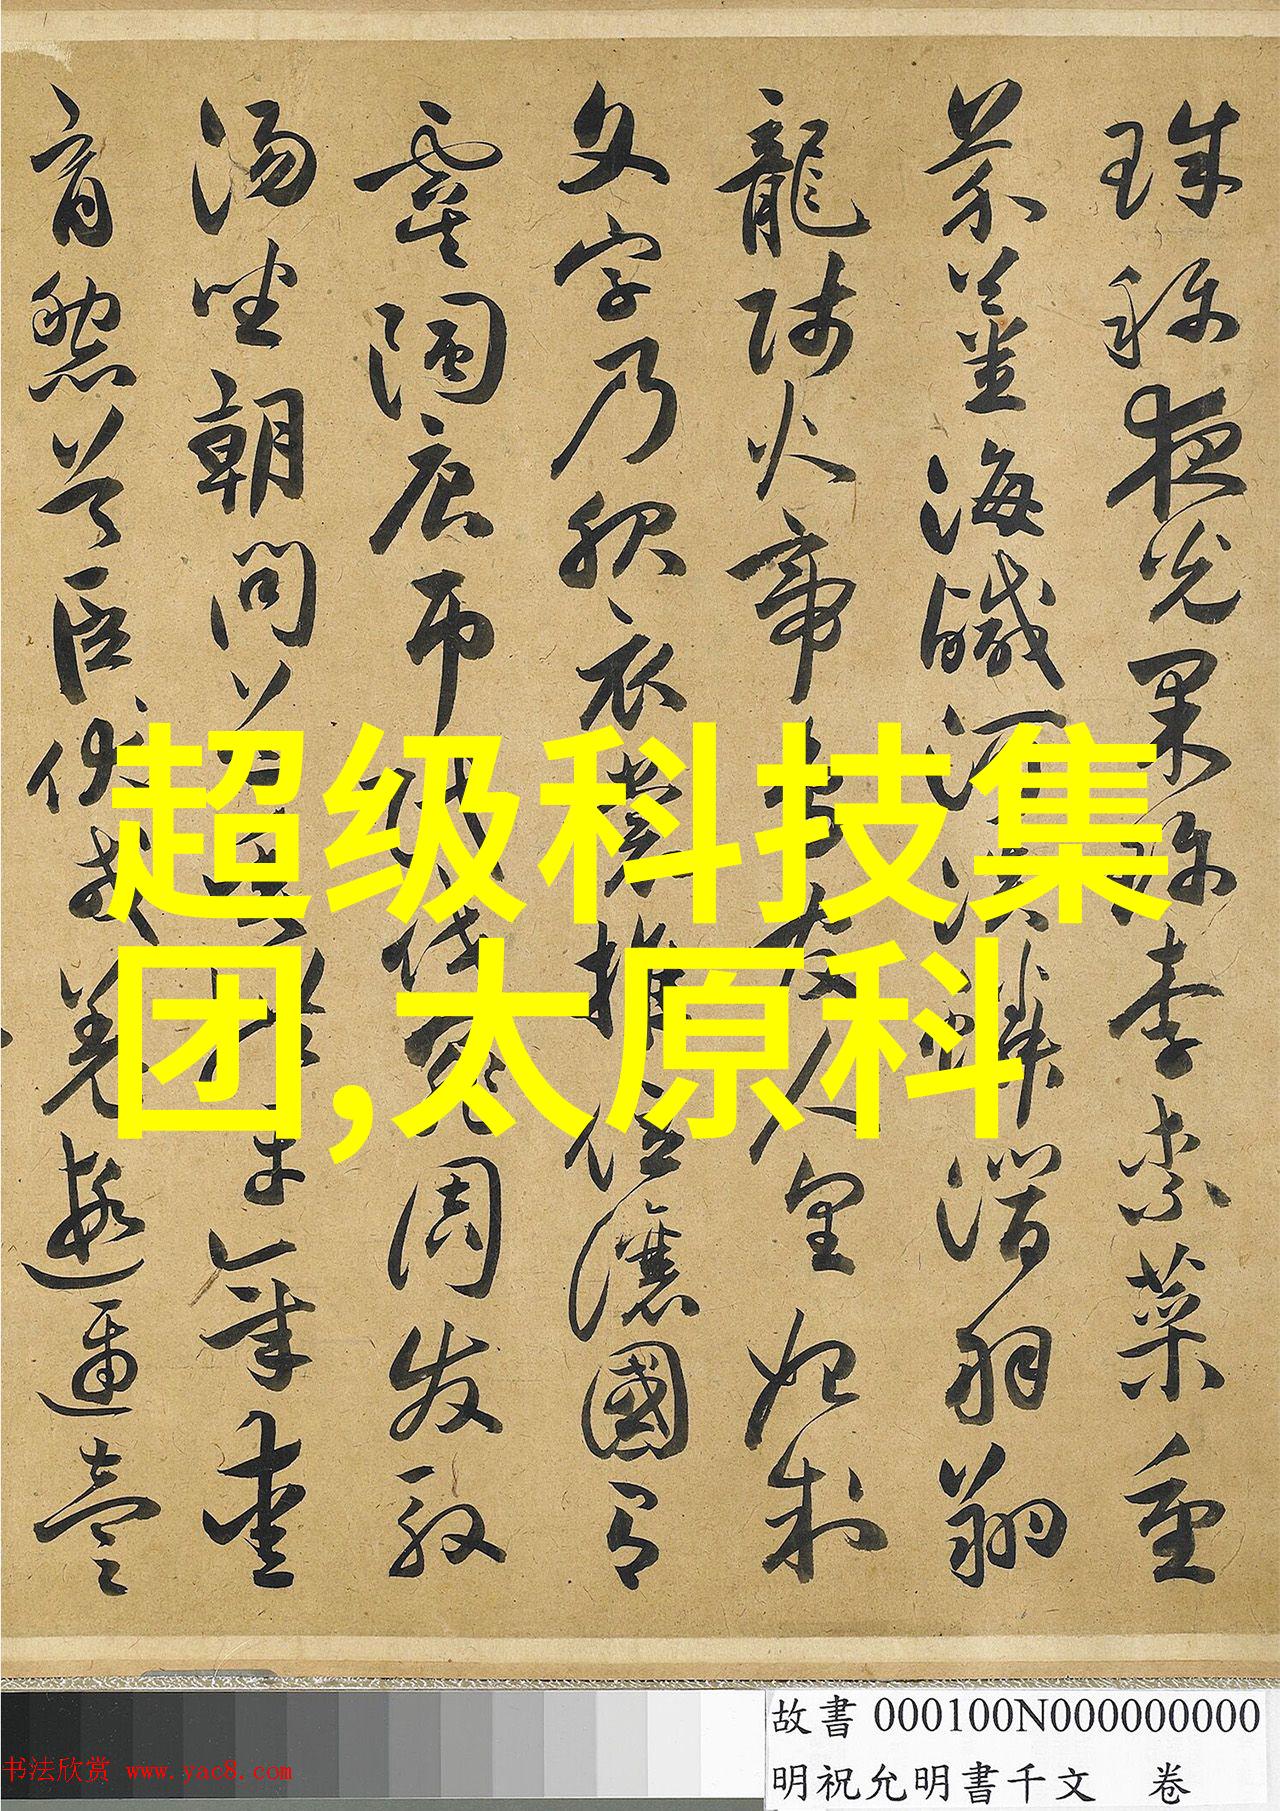 珠稱夜光果珍李柰菜重
芥薑海鹹河淡鱗潛羽翔
龍師火帝鳥官人皇始制
文字乃服衣裳推位讓國有
虞陶唐弔民伐罪周發殷
湯坐朝問道垂拱平章愛
育黎首臣伏戎羌遐邇壹
超级科技集
团,太原科
故書 000100N000000000
明祝允明書千文 卷
书法欣赏 www.yac8.com